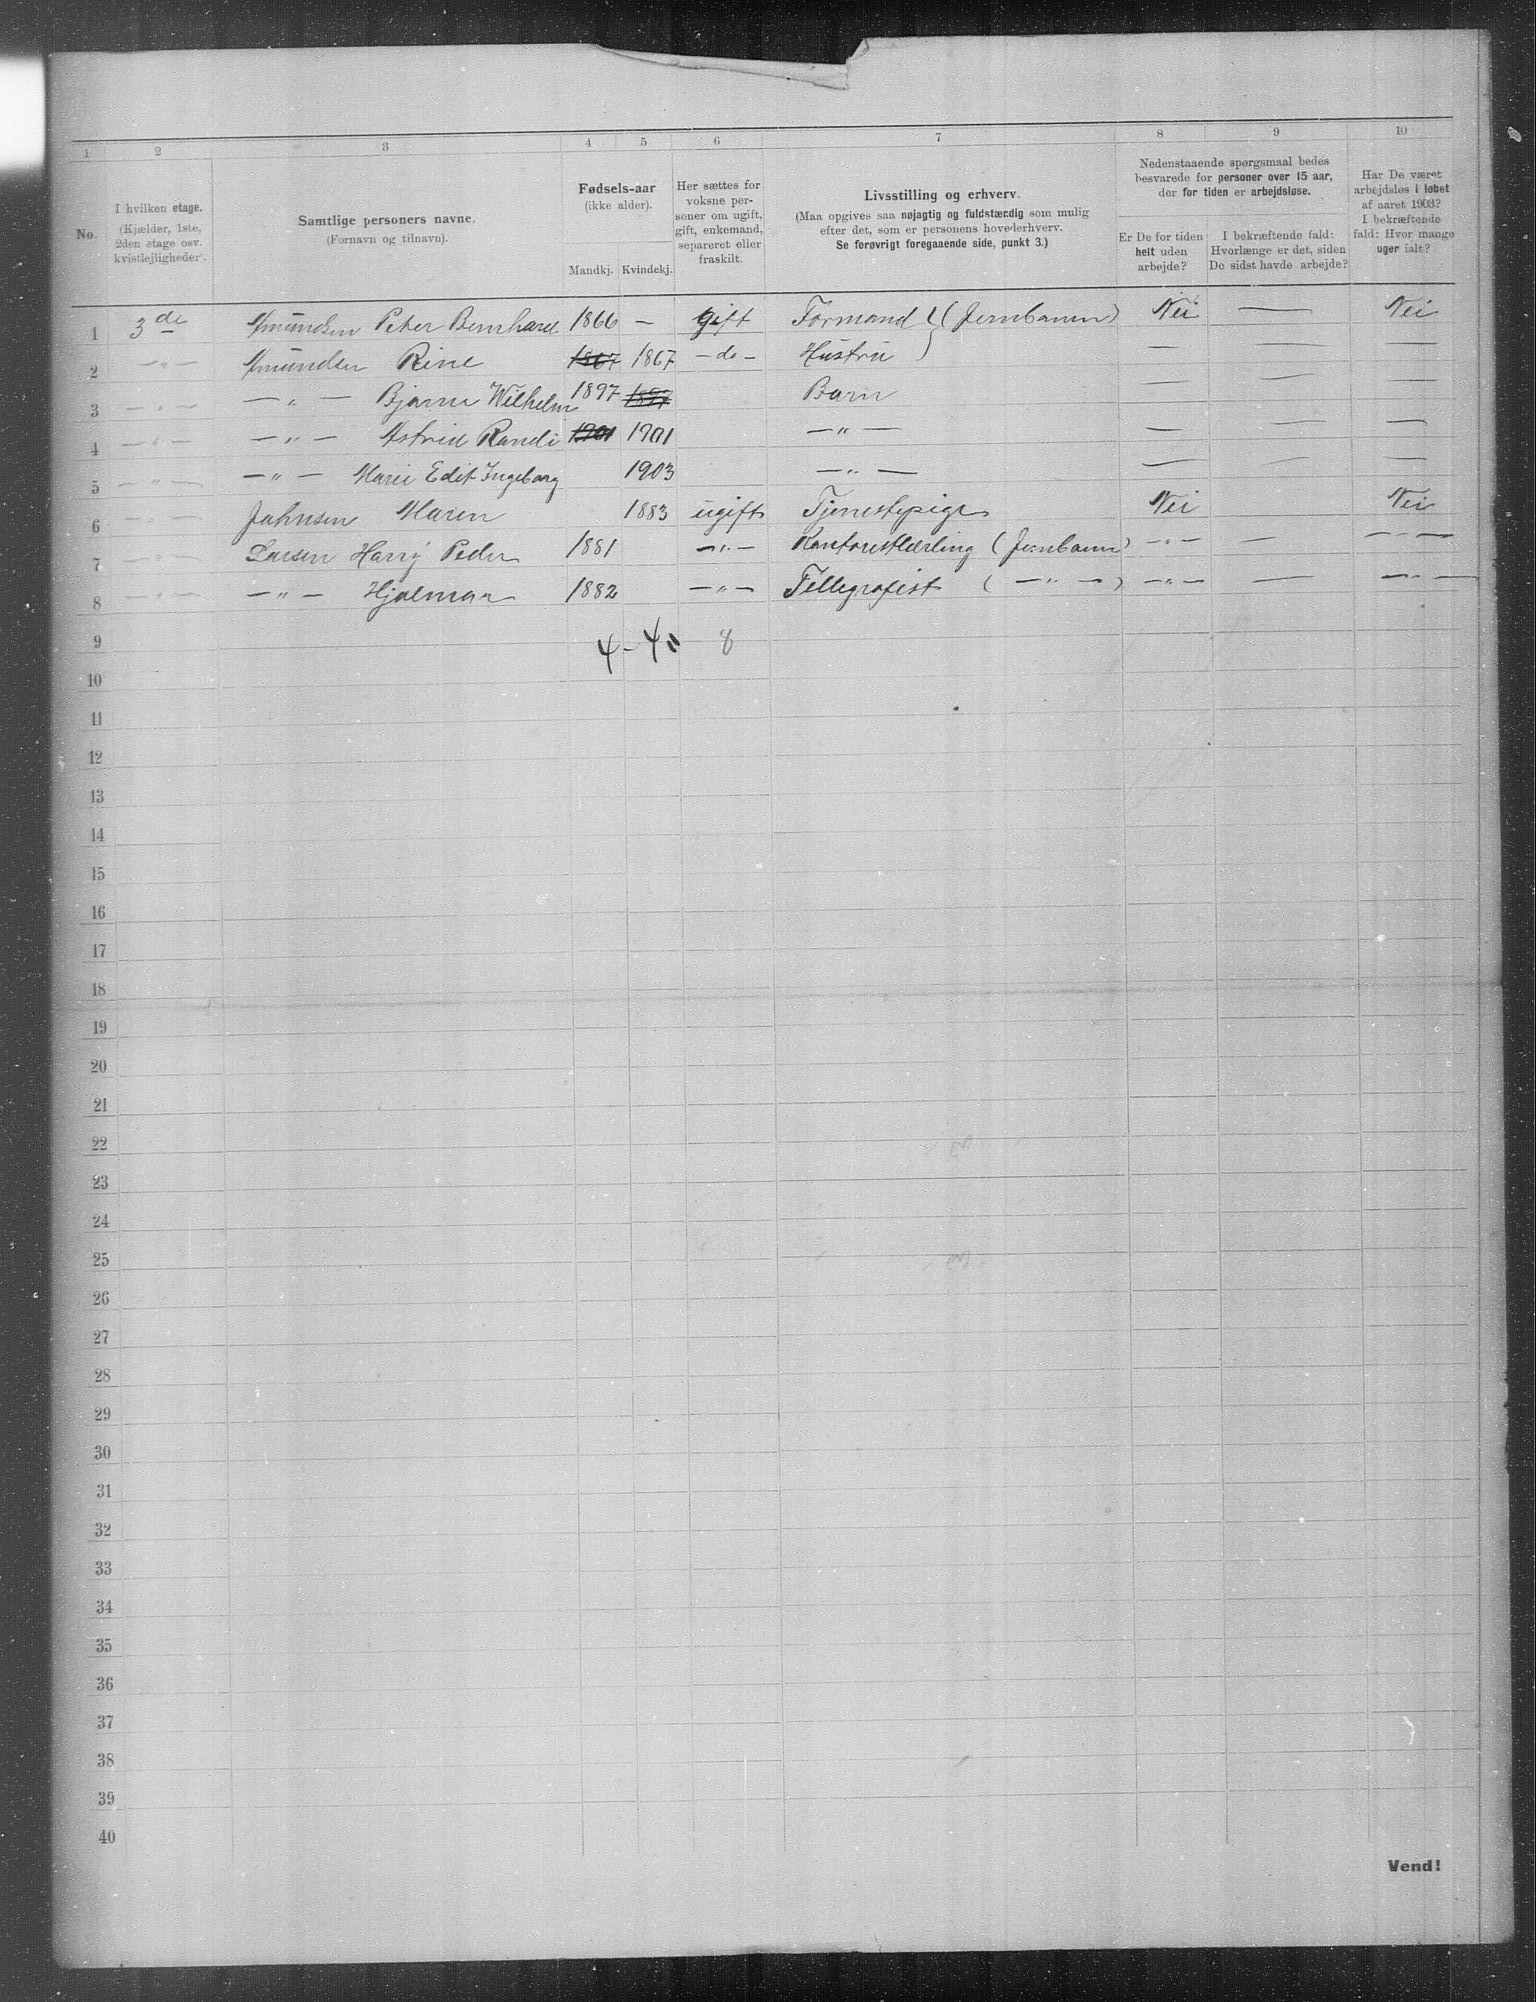 1 2 3 4 5 6 7 8 9 10
No.
I hvilken etage.
(Kjælder, 1ste,
2den etage osv.
kvistlejligheder).
Samtlige personers navne.
(Fornavn og tilnavn).
Fødsels-aar
(ikke alder).
Mandkj. Kvindekj.
Her sættes for
voksne per-
soner om ugift,
gift, enkemand,
separeret eller
fraskilt.
Livsstilling og erhverv.
(Maa opgives saa nøjagtig og fuldstændig som mulig
efter det, som er personens hovederhverv.
Se forøvrigt foregaaende side, punkt 3.)
Nedenstaaende spørgsmaal bedes
besvarede for personer over 15 aar,
der for tiden er arbejdsløse.
Er De for tiden
helt uden
arbejde?
I bekræftende fald:
Hvorlænge er det, siden
De sidst havde arbejde?
Har De været
arbejdsløs i løbet
af aaret 1903?
I bekræftende
fald: Hvor mange
uger ialt?
1 3de Amundsen Peter Bernhard 1866 — gift Formand (Jernbanen) Nei — Nei
2 — „ — Amundsen Rine 1867 1867 — do — Hustru — — —
3 — „ — — „ — Bjarne Wilhelm 1897 1897 Barn — — —
4 — „ — — „ — Astrid Randi 1901 1901 — „ — — — —
5 — „ — — „ — Marie Edit Ingeborg 1903 — „ — — — —
6 — „ — Johnsen Maren 1883 ugift Tjenestepige Nei — Nei
7 — „ — Larsen Harry Peder 1881 — „ — Kontorestlærling (Jernbanen) — „ — — — „ —
8 — „ — — „ — Hjalmar 1882 — „ — Tellegrafist ( — „ — ) — „ — — — „ —
9 4 - 4 8
10
11
12
13
14
15
16
17
18
19
20
21
22
23
24
25
26
27
28
29
30
31
32
33
34
35
36
37
38
39
40
Vend!